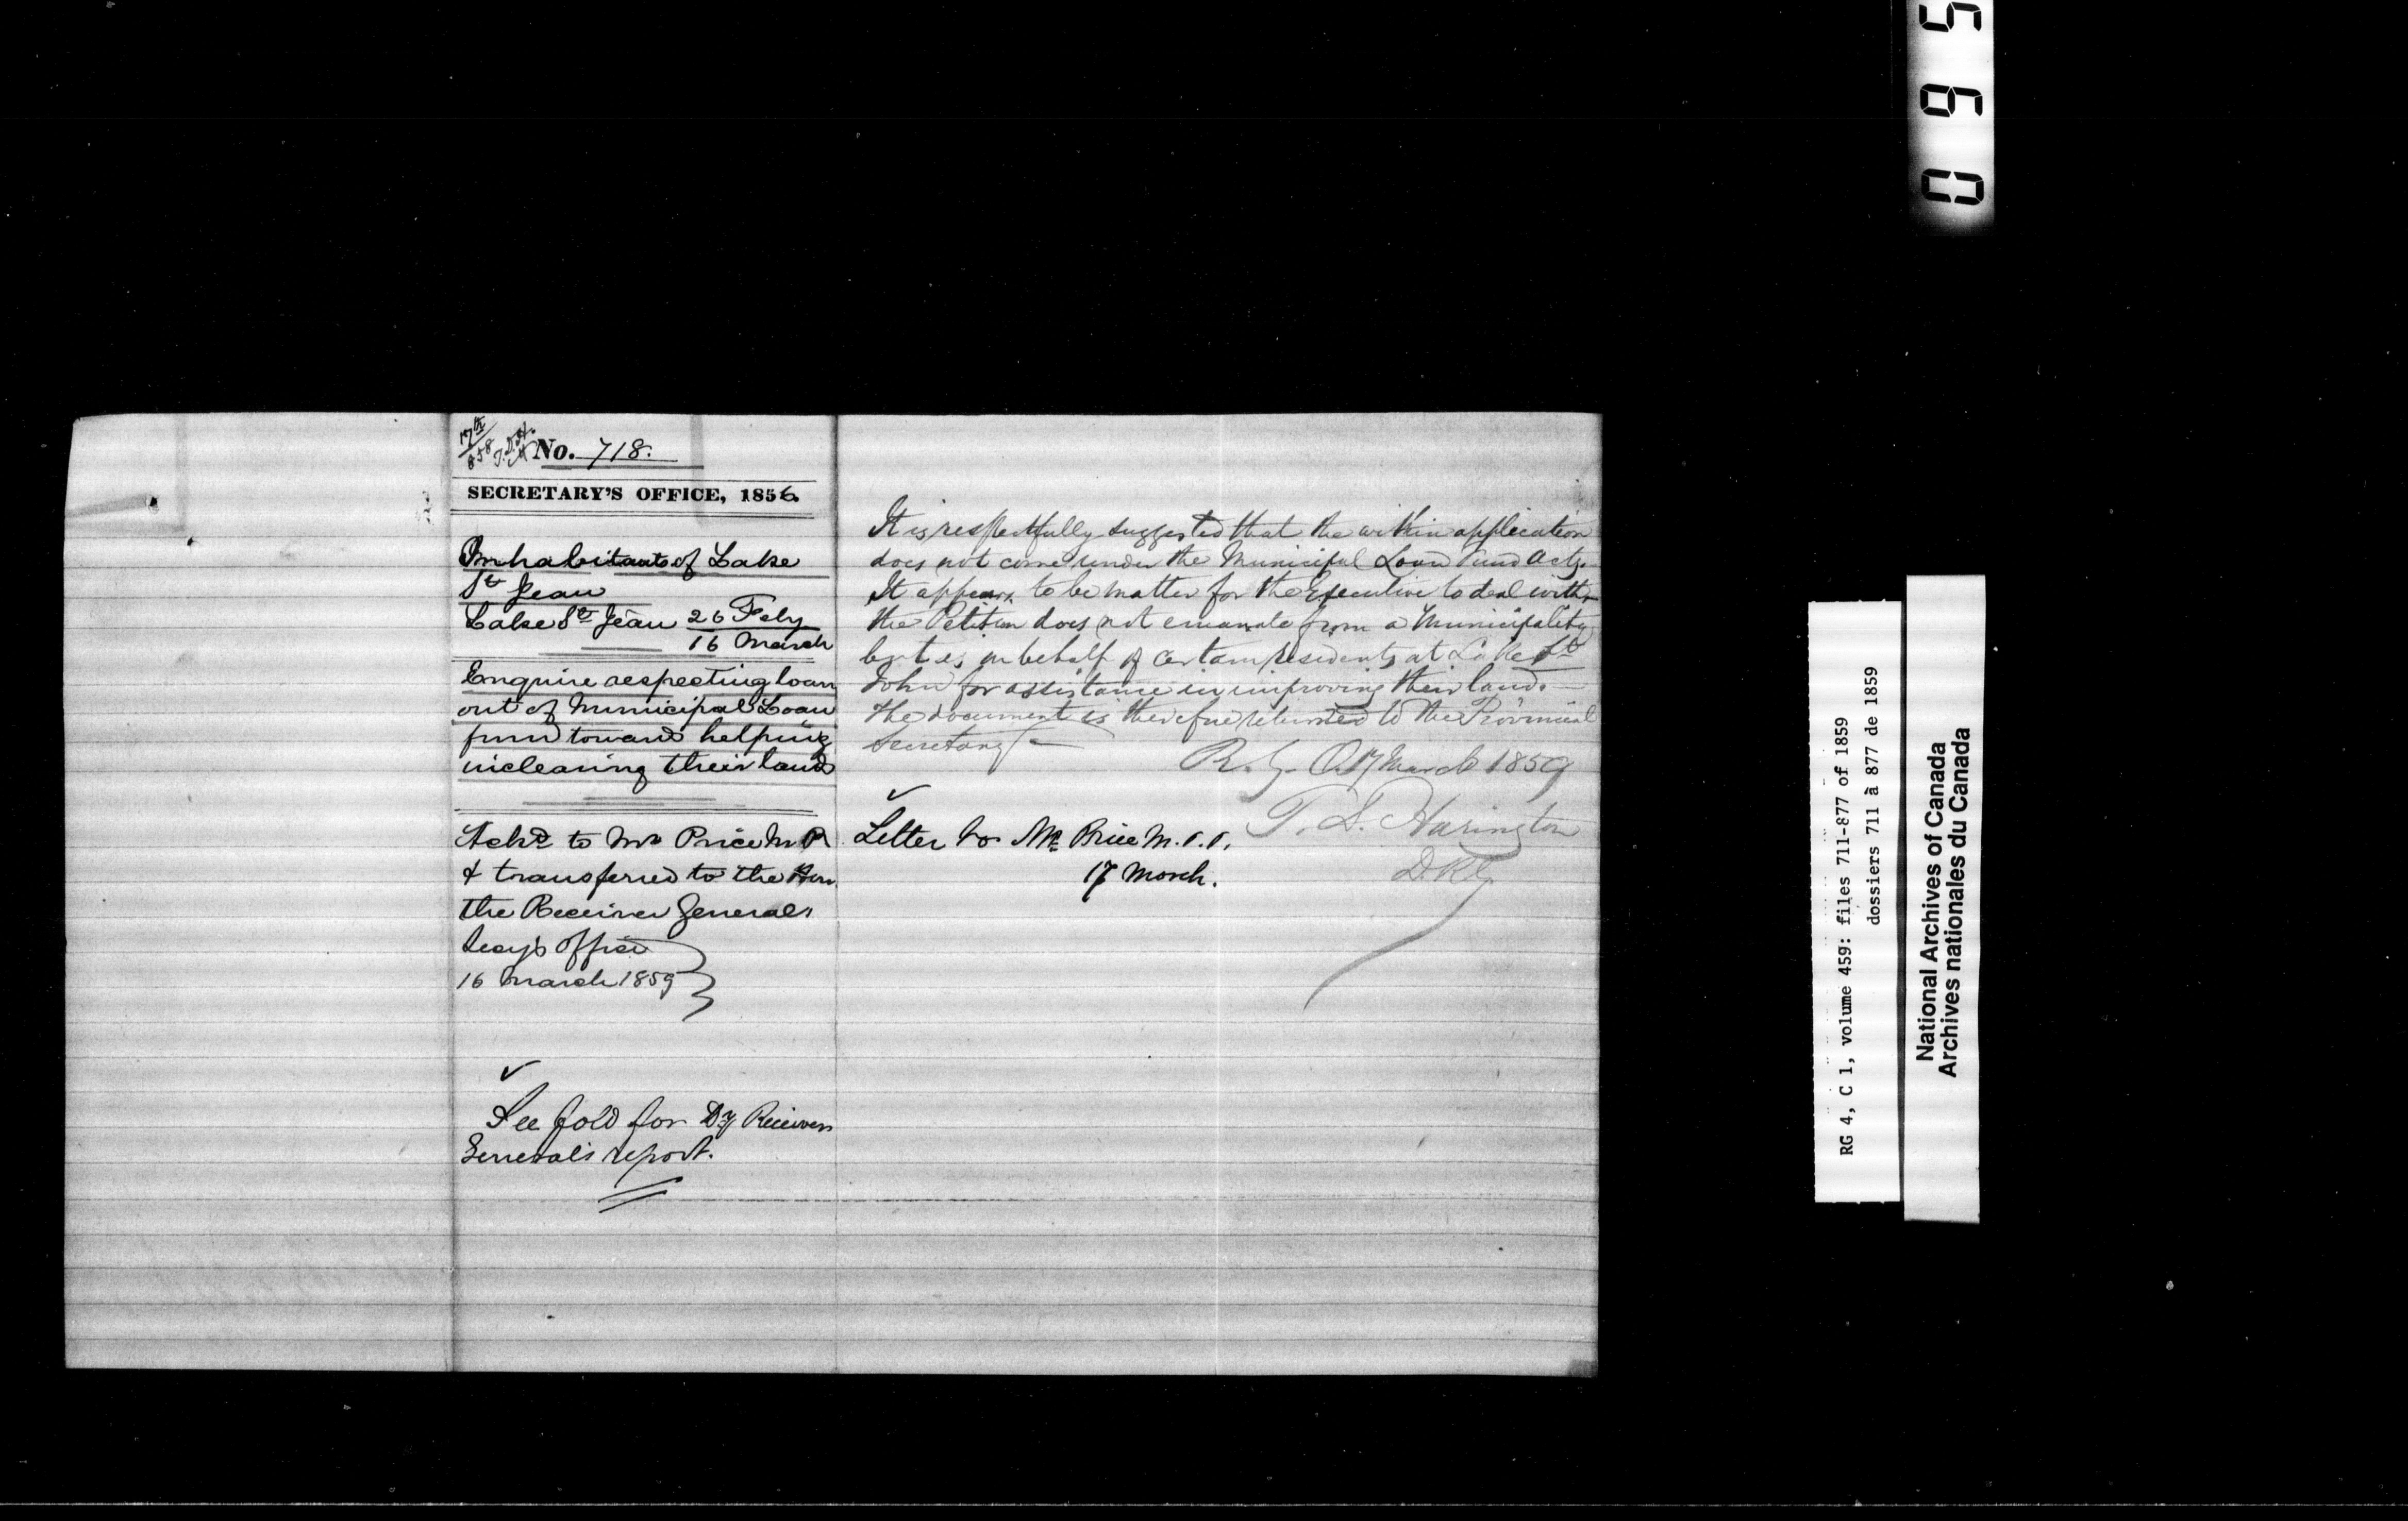 No. 718.
SECRETARY'S OFFICE, 1856.
Inhabitants of Lake
St Jean
Lake St Jean 26 Feby
16 March
Enquire respecting loan
out of Municipal Loan
fund towards helping
in clearing their lands
Ackd to Mr Price M.P.
& transferred to the Hon.
the Receiver General,
Secy's Office
16 March 1859
See fold for Dy Receiver
General's report.
It is respectfully suggested that the within application
does not come under the Municipal Loan Fund Acts.
It appears to be matter for the Executive to deal with,
the Petition does not emanate from a Municipality
but is on behalf of certain residents at Lake St
John for assistance in improving their land.
The document is therefore returned to the Provincial
Secretary
R. G. O. 17 March 1859
T. D. Harington
D.R.G.
Letter to Mr Price M.P.P.
17 March.
0 6 5
RG 4, C 1, volume 459: files 711-877 of 1859
dossiers 711 à 877 de 1859
National Archives of Canada
Archives nationales du Canada